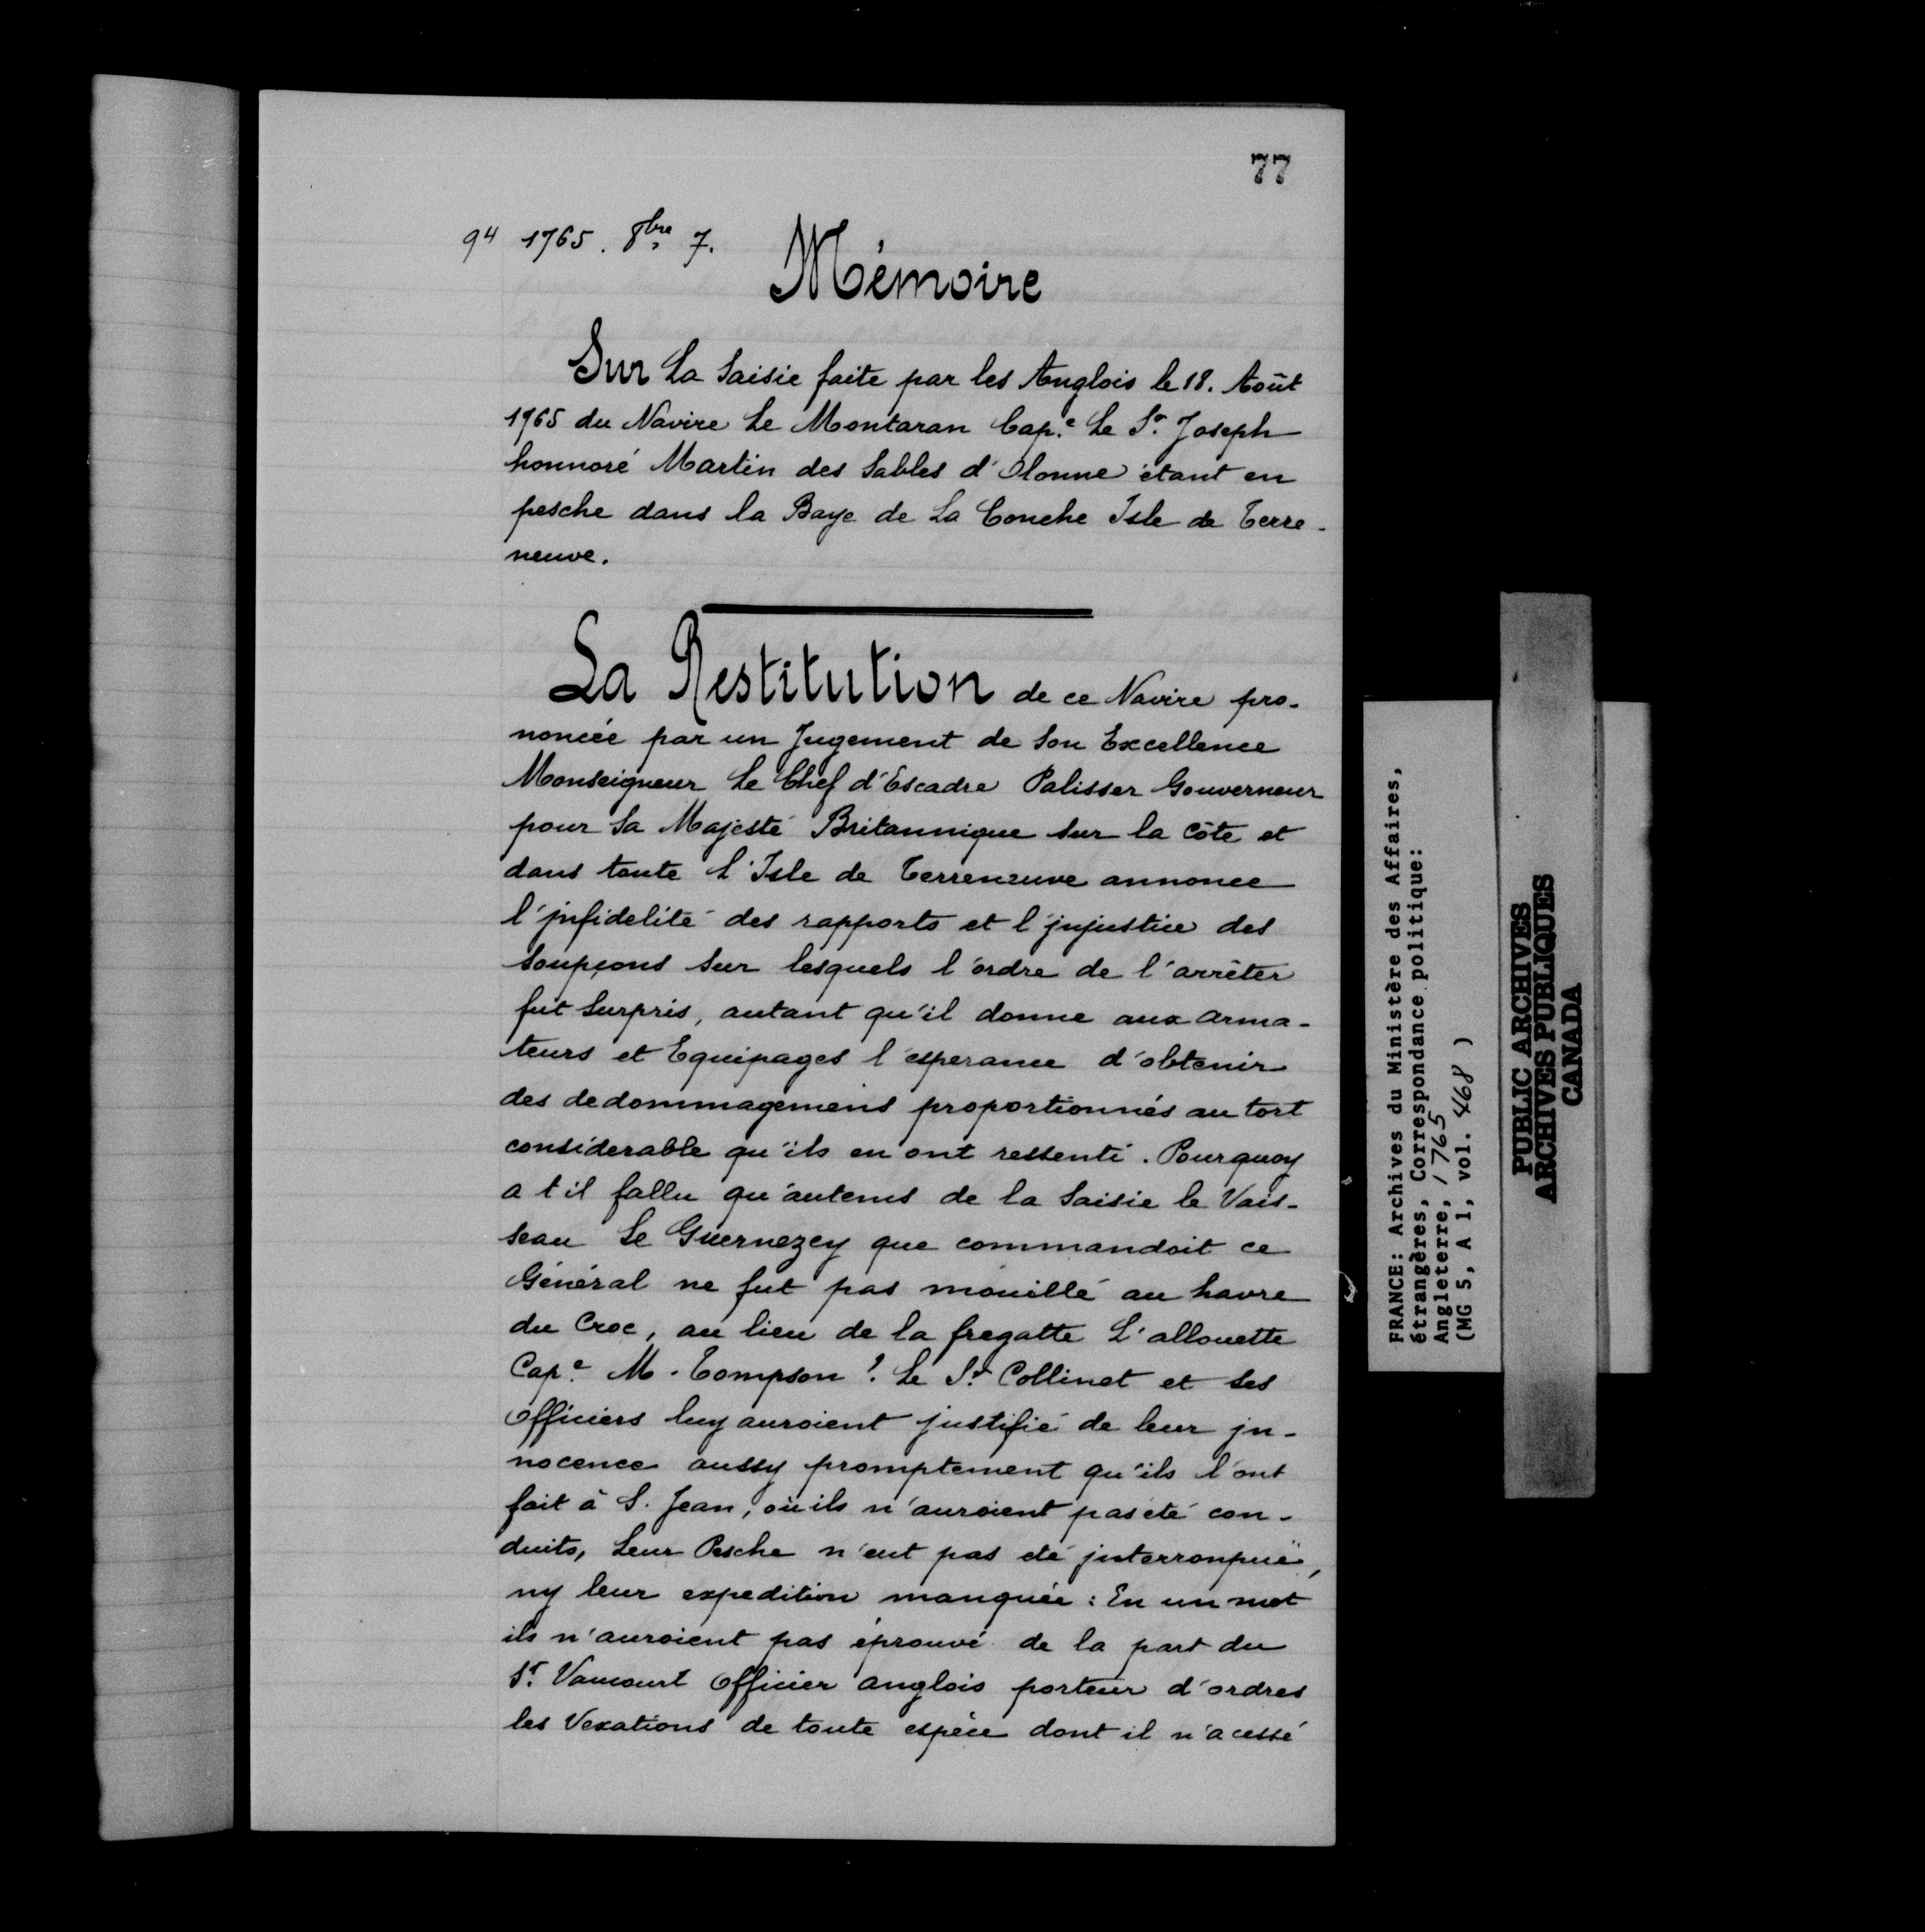 77
94 1765. 8bre 7.
Mémoire
Sur La Saisie faite par les Anglois le 18. Août
1765 du Navire Le Montaran Cap.e Le Sr. Joseph
honnoré Martin des Sables d'Olonne étant en
pesche dans la Baye de La Conche Isle de Terre-
neuve.
La Restitution de ce Navire pro-
noncée par un Jugement de Son Excellence
Monseigneur Le Chef d'Escadre Palisser Gouverneur
pour Sa Majesté Britannique Sur la côte et
dans toute L'Isle de Terreneuve annonce
l'jnfidelité des rapports et l'jnjustice des
Soupçons Sur lesquels l'ordre de l'arrêter
fut Surpris, autant qu'il donne aux arma-
teurs et Equipages l'esperance d'obtenir
des dedommagemens proportionnés au tort
considerable qu'ils en ont ressenti. Pourquoy
a t il fallu qu'autems de la Saisie le Vais-
seau Le Guernezey que commandoit ce
Général ne fut pas mouillé au havre
du Croc, au lieu de la fregatte L'allouette
Cap.e M. Tompson? Le Sr. Collinet et ses
officiers luy auroient justifié de leur jn-
nocence aussy promptement qu'ils l'ont
fait à S. Jean, où ils n'auroient pas été con-
duits, Leur Pesche n'eut pas eté jnterronpuë,
ny leur expedition manquée: En un mot
ils n'auroient pas éprouvé de la part du
Sr. Vancourt officier anglois porteur d'ordres
les Vexations de toute espèce dont il n'a cessé
FRANCE: Archives du Ministère des Affaires,
étrangères, Correspondance politique:
Angleterre, 1765
(MG 5, A 1, vol. 468 )
PUBLIC ARCHIVES
ARCHIVES PUBLIQUES
CANADA